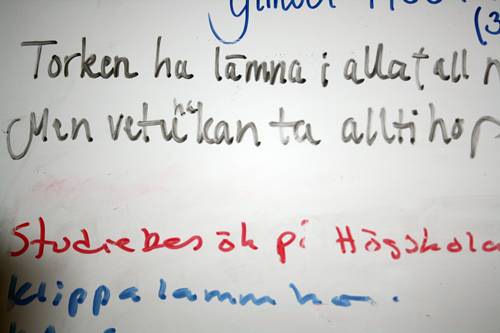 Torken ha lämna i allafall
Men vetu ha kan ta allt iho
Studiebesök på Högskola
klippa lamm ho.